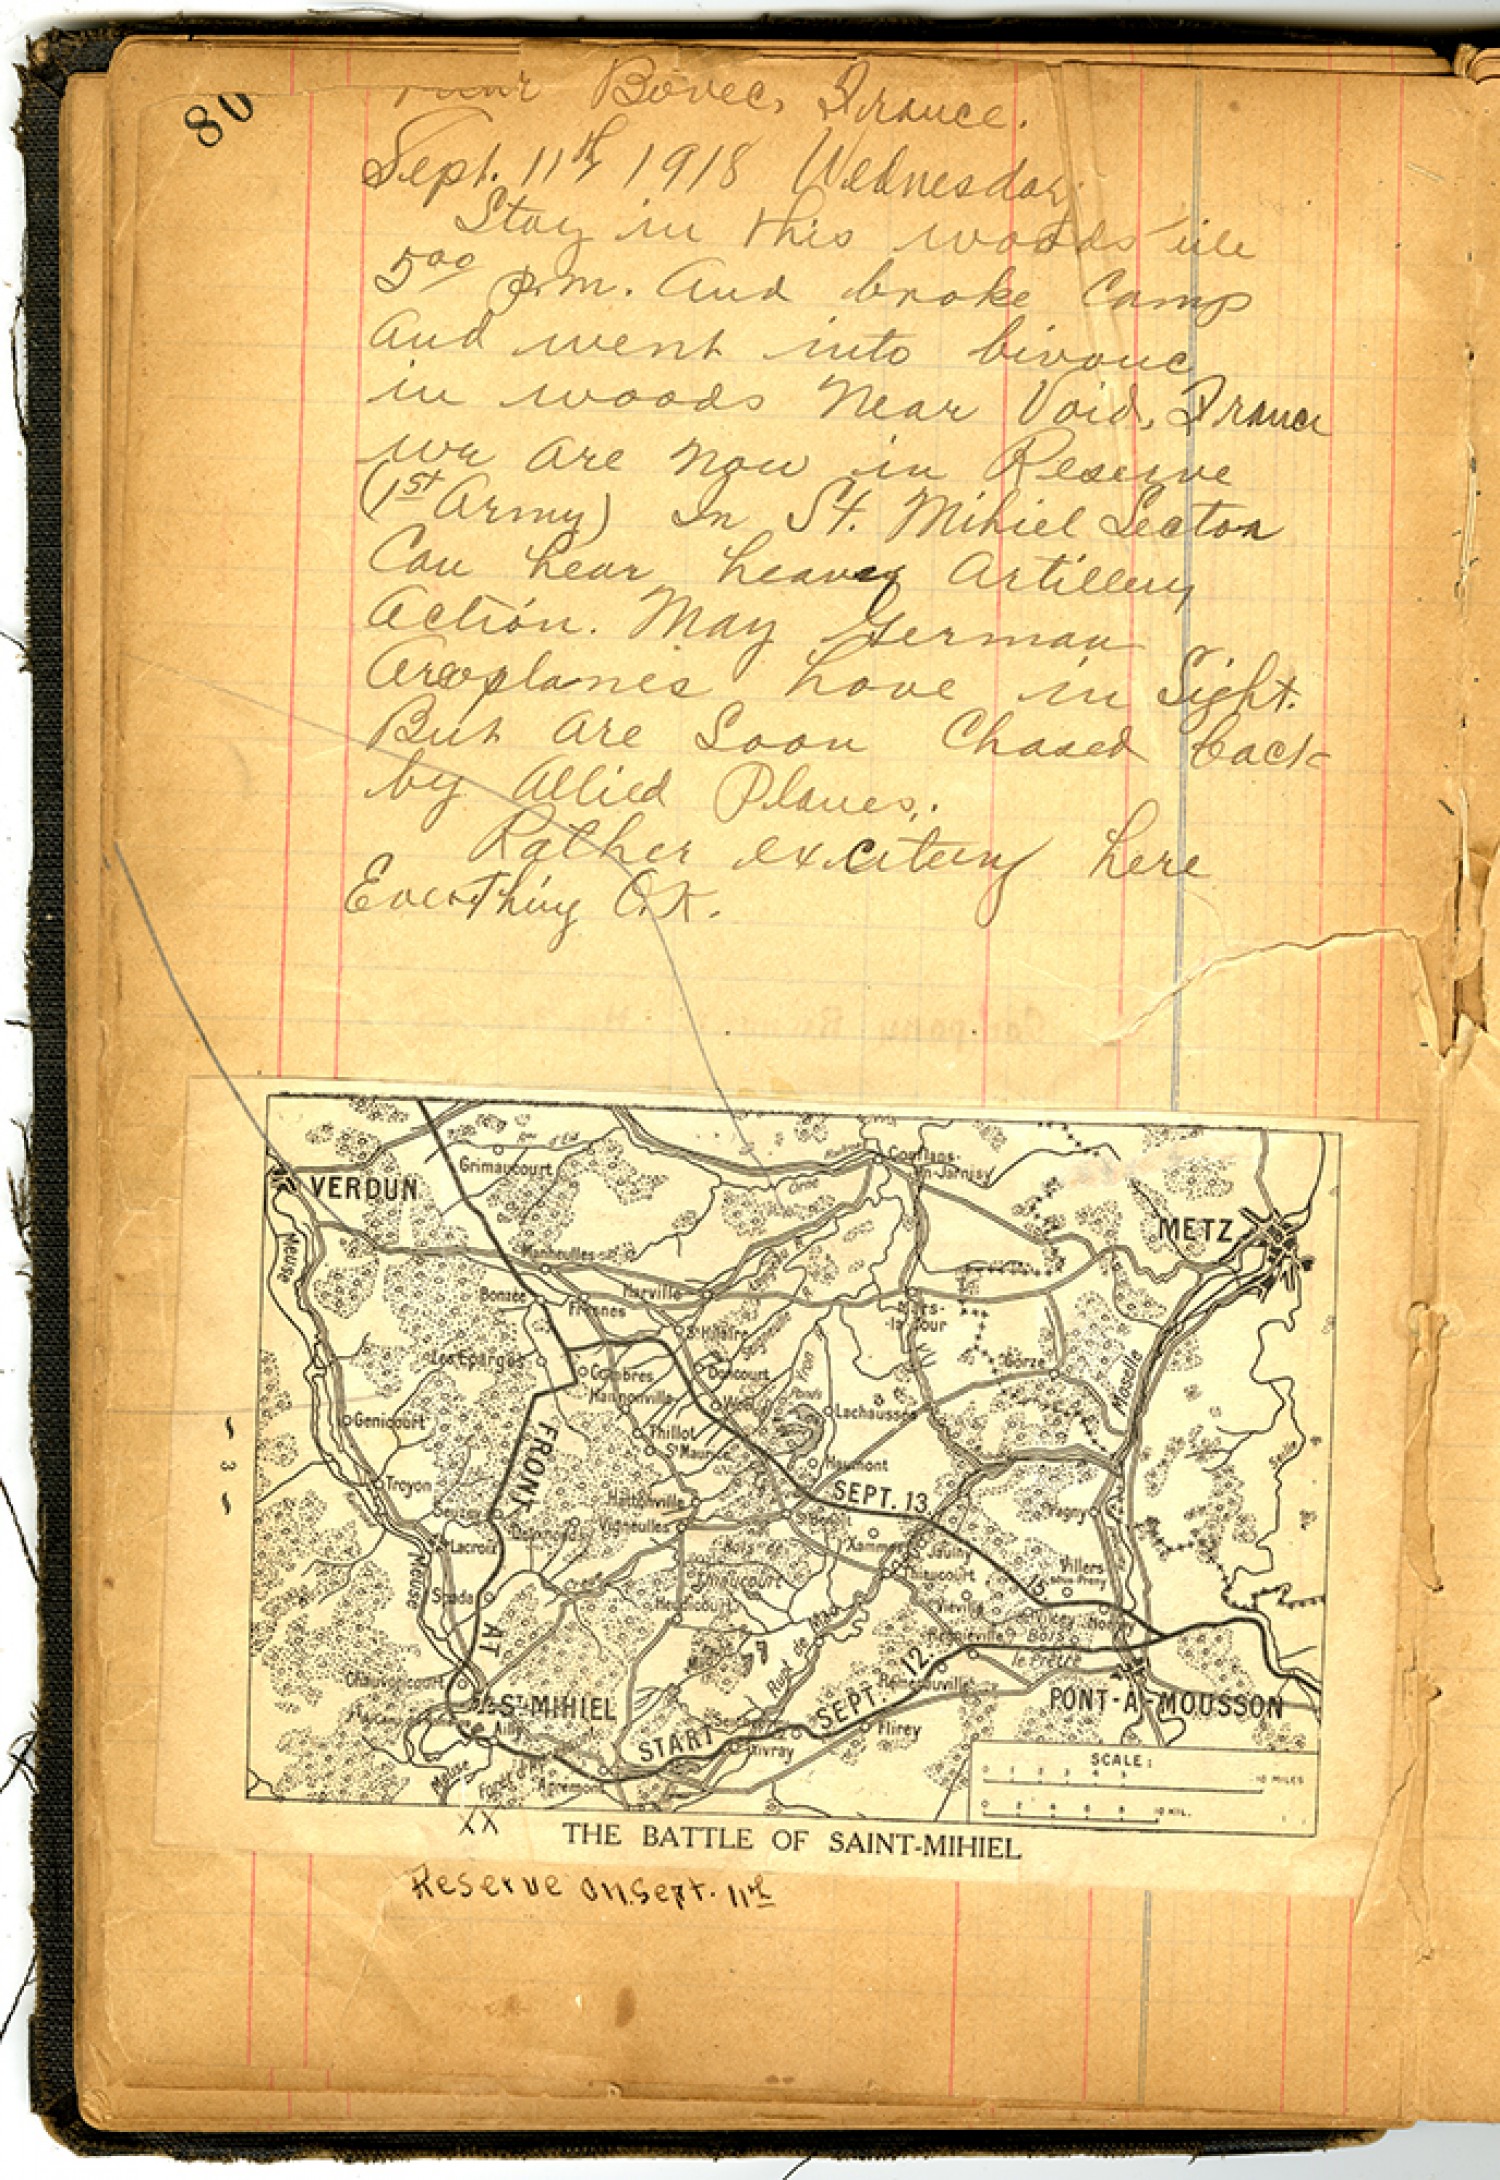 80
Near Bovec, France.
Sept. 11th 1918 Wednesday.
Stay in this woods till
500 P.m. And broke Camp
And went into bivouc
in woods Near Void, France
we are now in Reserve
(1st Army) In St. Mihiel Sector
Can hear heavy Artillery
Action. May German
Areoplanes hove in Sight.
But are Soon Chased back
by Allied Planes.
Rather exciting here
Everthing O.K.
Grimaucourt
Conflans-
-en-Jarnisy
VERDUN
METZ
Meuse
Manheulles
Bonzée
Fresnes
Harville
Mars-
-la-Tour
St Hilaire
Les Eparges
Combres
Doncourt
Gorze
Hannonville
Woël
Moselle
Genicourt
Lachaussée
Thillot
St Maurice
FRONT
Haumont
Troyon
SEPT. 13
Hattonville
Vigneulles
St Benoit
Lacroix
Xammes
Jaulny
Thiaucourt
Villers
sous-Preny
Meuse
Spada
Heudicourt
15
Vieville
Regnieville
Bois
le Prêtre
AT
Rupt de Mad
12.
Chauvoncourt
St MIHIEL
Ailly
PONT-À-MOUSSON
START
SEPT.
Flirey
Xivray
Meuse
Apremont
SCALE:
0 1 2 3 4 5 10 MILES
0 2 4 6 8 10 KIL.
3
XX
THE BATTLE OF SAINT-MIHIEL
Reserve on Sept. 11th